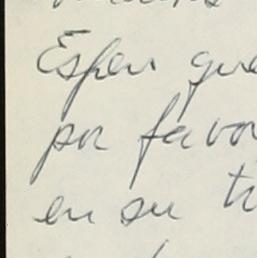 Espero que
por favor
en su tr